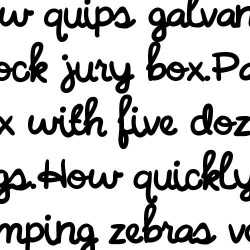 ow quips galvan
ock jury box.Pa
x with five doz
gs.How quickly
mping zebras v